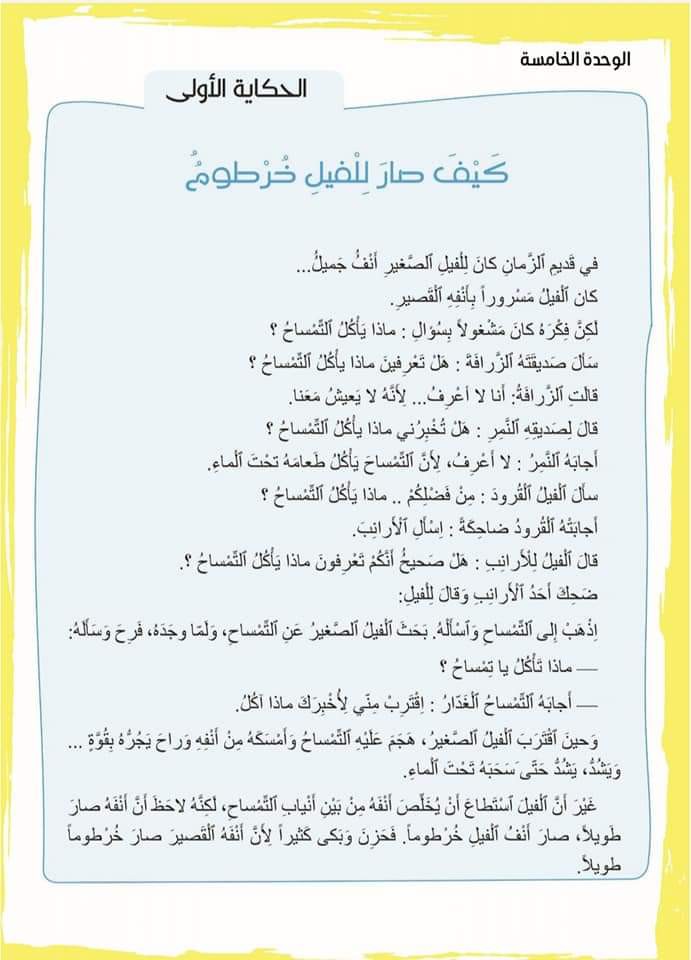 الوحدة الخامسة
الحكاية الأولى
كَيْفَ صارَ لِلْفيلِ خُرْطومُ
في قَديمِ ٱلزَّمانِ كانَ لِلْفيلِ ٱلصَّغيرِ أَنْفُ جَميلُ...
كان ٱلْفيلُ مَسْروراً بِأَنْفِهِ ٱلْقَصيرِ.
لَكِنَّ فِكْرَهُ كانَ مَشْغولاً بِسُؤالِ : ماذا يَأْكُلُ ٱلتِّمْساحُ ؟
سَأَلَ صَديقَتَهُ ٱلزَّرافَةَ : هَلْ تَعْرِفينَ ماذا يأْكُلُ ٱلتِّمْساحُ ؟
قالَتِ ٱلزَّرافَةُ: أَنا لا أعْرِفُ... لِأَنَّهُ لا يَعيشُ مَعَنا.
قالَ لِصَديقِهِ ٱلنَّمِرِ : هَلْ تُخْبِرُني ماذا يأْكُلُ ٱلتِّمْساحُ ؟
أَجابَهُ ٱلنَّمِرُ : لا أَعْرِفُ، لِأَنَّ ٱلتِّمْساحَ يَأْكُلُ طَعامَهُ تَحْتَ ٱلْماءِ.
سأَلَ ٱلْفيلُ ٱلْقُرودَ : مِنْ فَضْلِكُمْ .. ماذا يَأْكُلُ ٱلتِّمْساحُ ؟
أَجابَتْهُ ٱلْقُرودُ ضاحِكَةً : اِسْأَلِ ٱلْأَرانِبَ.
قالَ ٱلْفيلُ لِلْأَرانِبِ : هَلْ صَحيحُ أَنَّكُمْ تَعْرِفونَ ماذا يَأْكُلُ ٱلتِّمْساحُ ؟.
ضَحِكَ أَحَدُ ٱلْأَرانِبِ وَقالَ لِلْفيلِ:
اِذْهَبْ إِلى ٱلتِّمْساحِ وَٱسْأَلْهُ. بَحَثَ ٱلْفيلُ ٱلصَّغيرُ عَنِ ٱلتِّمْساحِ، وَلَمّا وجَدَهُ، فَرِحَ وَسَأَلَهُ:
— ماذا تَأْكُلُ يا تِمْساحُ ؟
— أَجابَهُ ٱلتِّمْساحُ ٱلْغَدّارُ : اِقْتَرِبْ مِنّي لِأُخْبِرَكَ ماذا آكُلُ.
وَحينَ ٱقْتَرَبَ ٱلْفيلُ ٱلصَّغيرُ، هَجَمَ عَلَيْهِ ٱلتِّمْساحُ وَأَمْسَكَهُ مِنْ أَنْفِهِ وَراحَ يَجُرُّهُ بِقُوَّةٍ ...
وَيَشُدُّ، يَشُدُّ حَتّى سَحَبَهُ تَحْتَ ٱلْماءِ.
غَيْرَ أَنَّ ٱلْفيلَ ٱسْتَطاعَ أَنْ يُخَلِّصَ أَنْفَهُ مِنْ بَيْنِ أَنْيابِ ٱلتِّمْساحِ، لَكِنَّهُ لاحَظَ أَنَّ أَنْفَهُ صارَ
طَويلاً، صارَ أَنْفُ ٱلْفيلِ خُرْطوماً. فَحَزِنَ وَبَكى كَثيراً لِأَنَّ أَنْفَهُ ٱلْقَصيرَ صارَ خُرْطوماً
طويلاً.